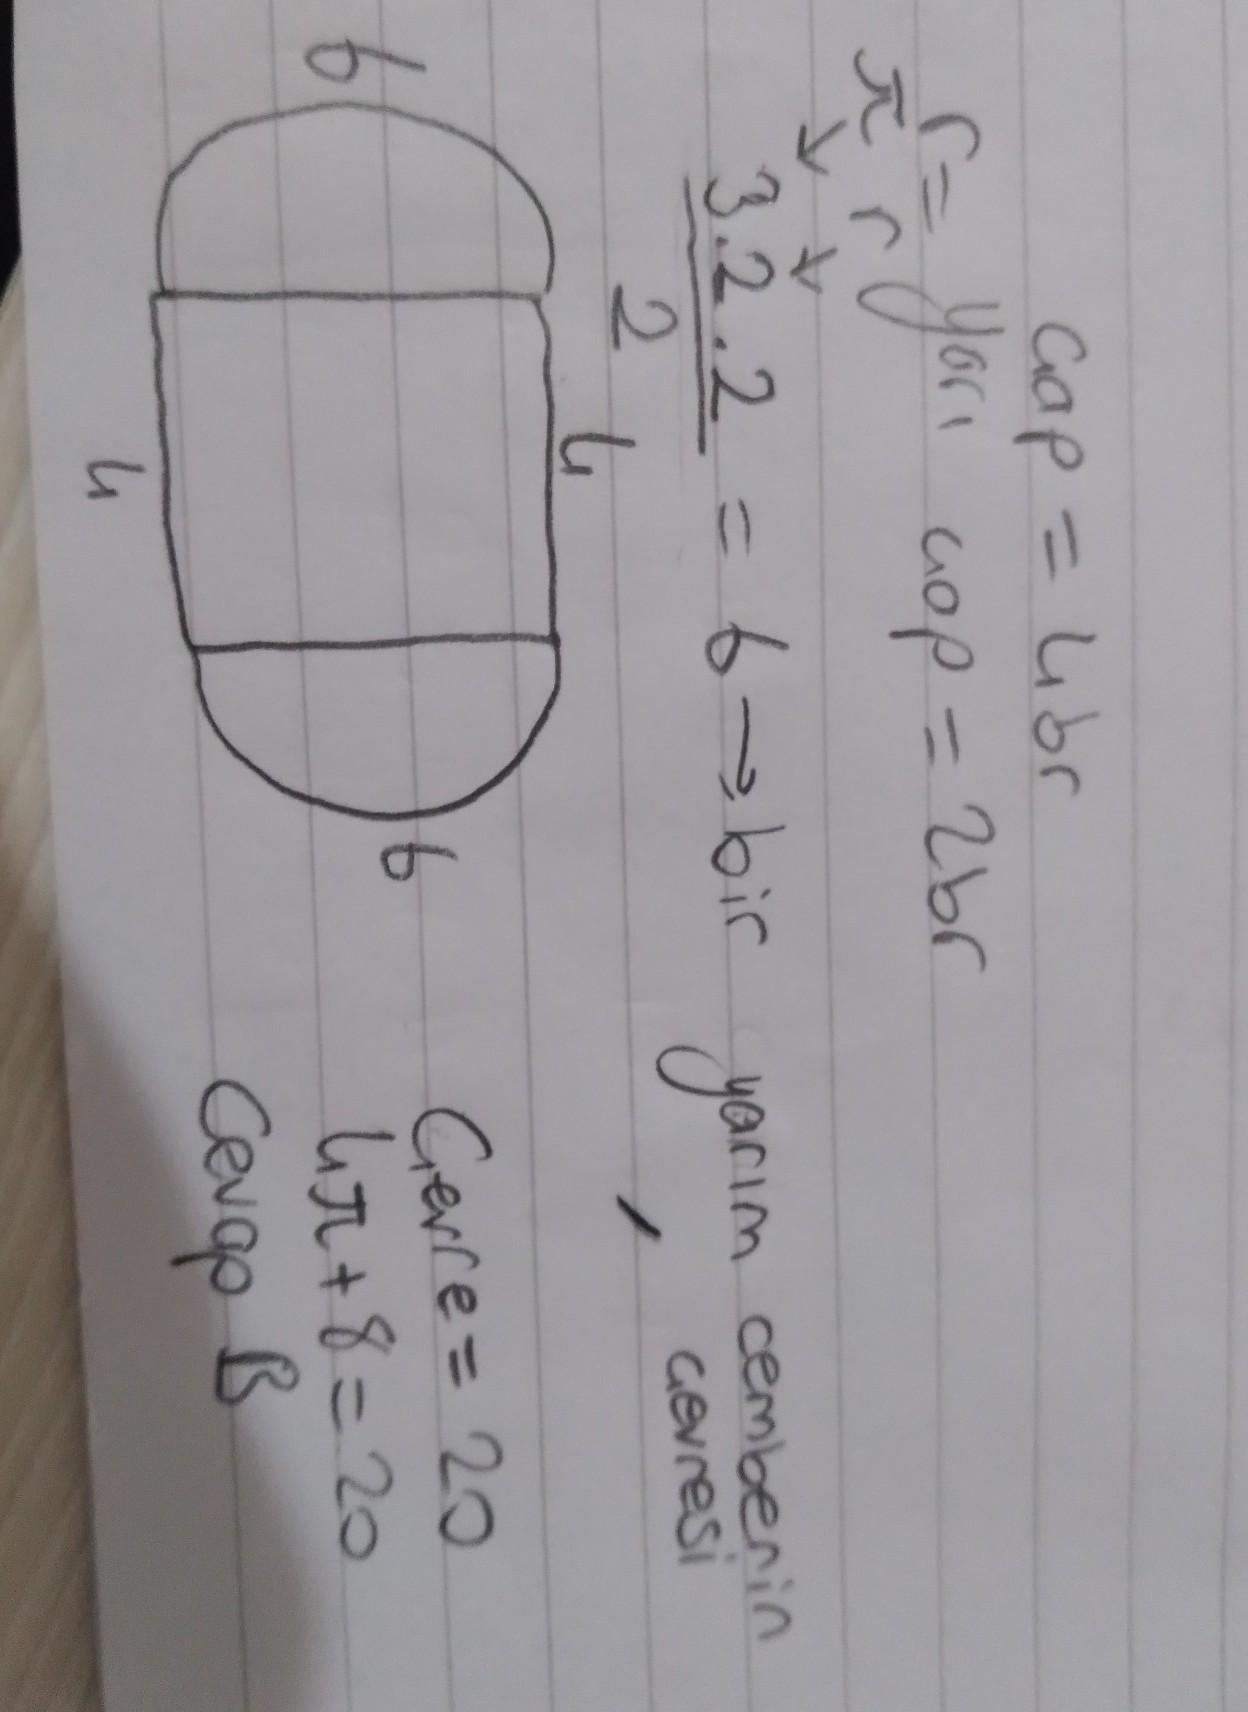 Çap = 4br
r = yarı çap = 2br
π r
3.2.2 = 6 → bir yarım cemberin
2
çevresi
4
6
6
4
Çevre = 20
4π + 8 = 20
Cevap B